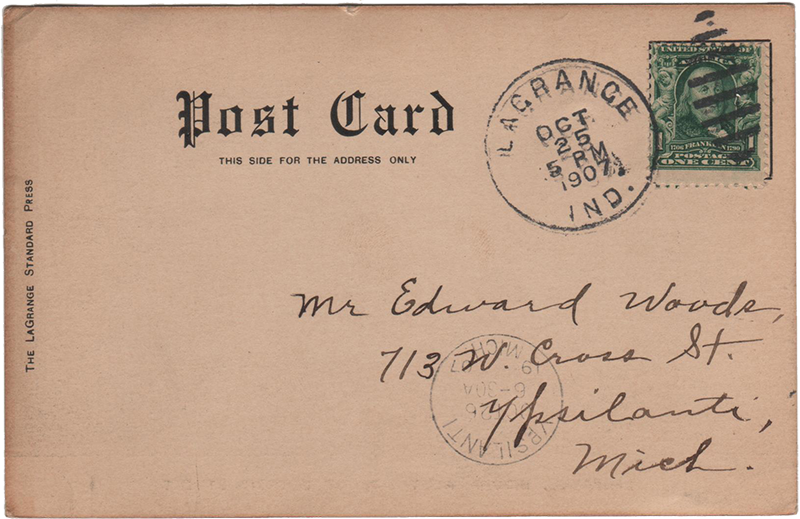 Post Card
THIS SIDE FOR THE ADDRESS ONLY
THE LAGRANGE STANDARD PRESS
LAGRANGE
OCT
1907
IND.
UNITED STATES OF
AMERICA
1 1706 FRANKLIN 1790 1
POSTAGE
ONE CENT
Mr Edward Woods,
713 W. Cross St.
Ypsilanti,
Mich.
YPSILANTI
26
6-30A
MICH.